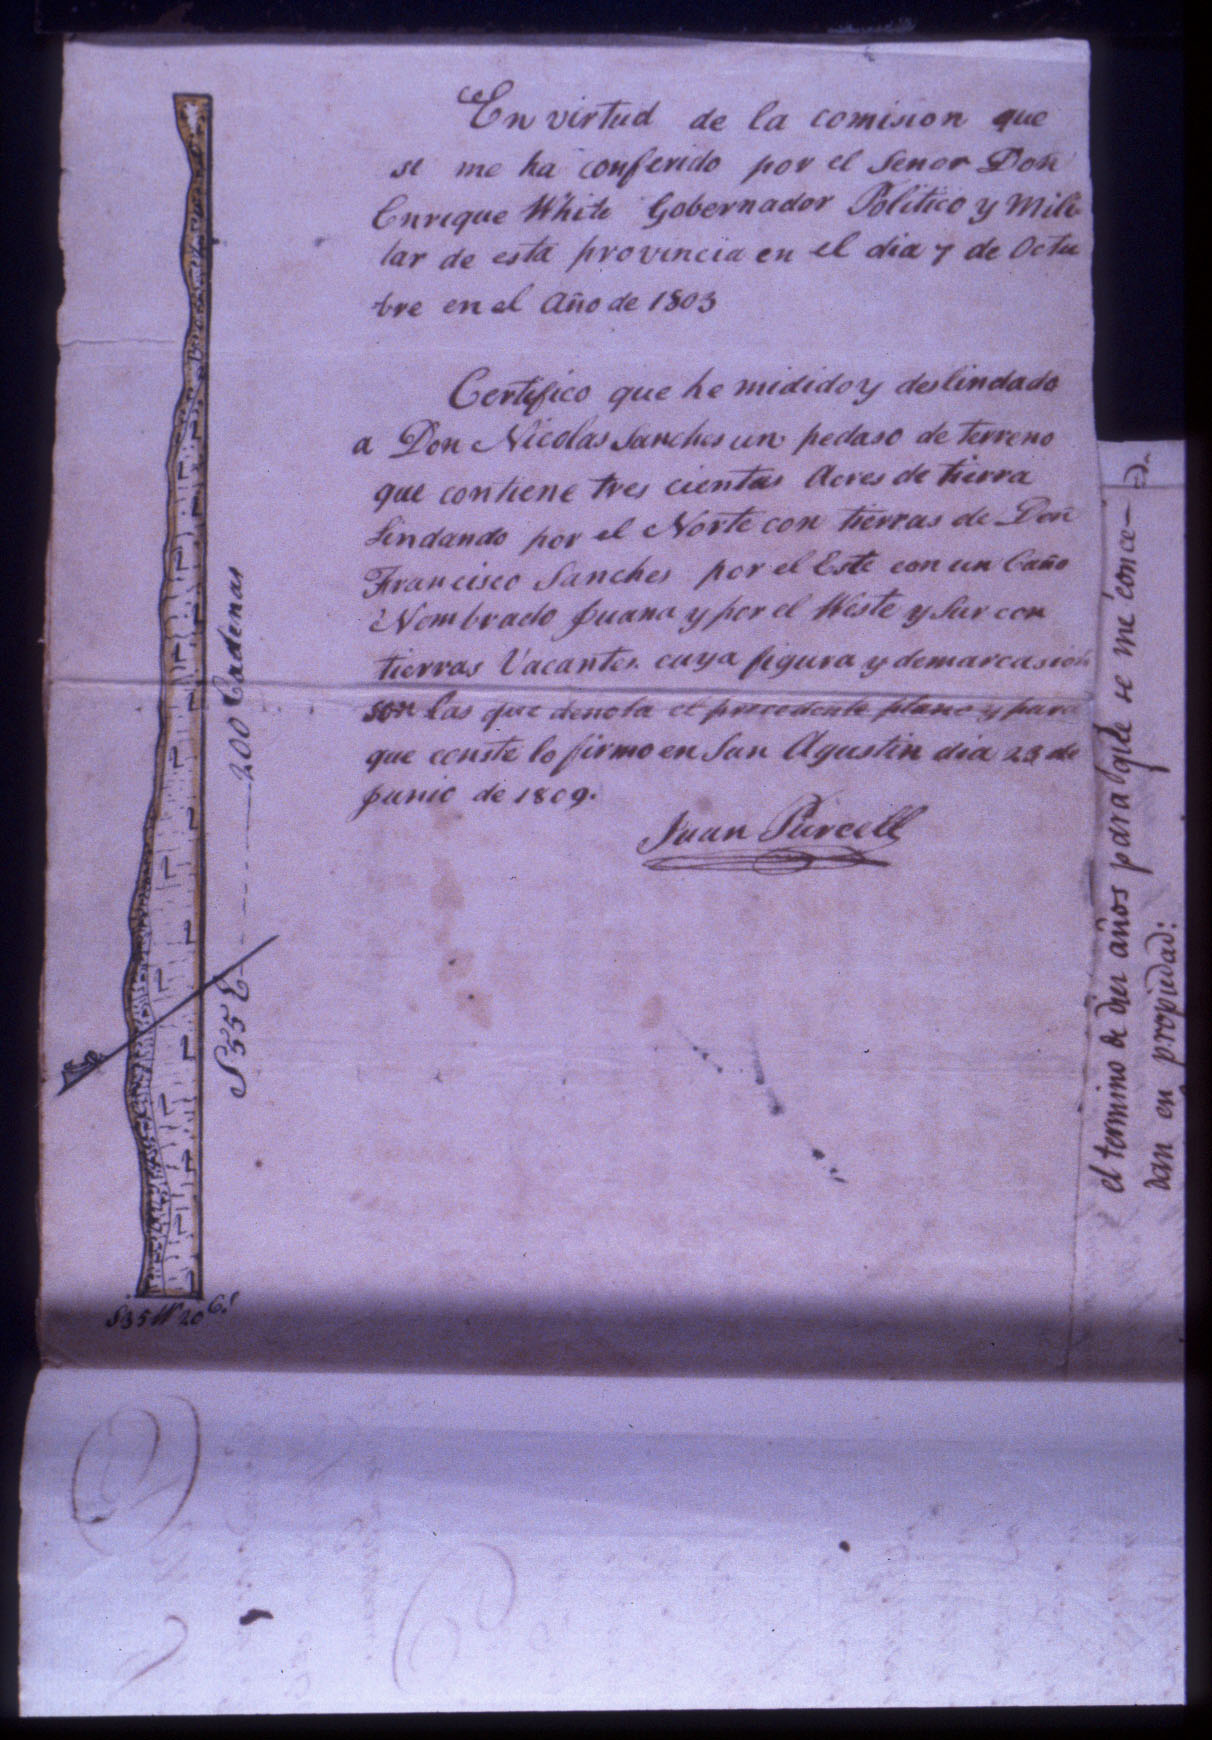 En virtud de la comision que
se me ha conferido por el Senor Don
Enrique White Gobernador Politico y Mili-
tar de esta provincia en el dia 7 de Octu
bre en el Año de 1803
Certifico que he midido y deslindado
a Don Nicolas Sanches un pedaso de terreno
que contiene tres cientas Acres de tierra
Lindando por el Norte con tierras de Don
Francisco Sanches por el Este con un Caño
Nombrado Juana y por el Weste y Sur con
tierras Vacantes. cuya figura y demarcasion
son las que denota el precedente plano y para
que conste lo firmo en San Agustin dia 23 de
Junio de 1809.
Juan Purcell
S 55 E 200 Cadenas
S 35 W 20 C.s
el termino de diez años para qᵉ se me conce-
dan en propiedad: